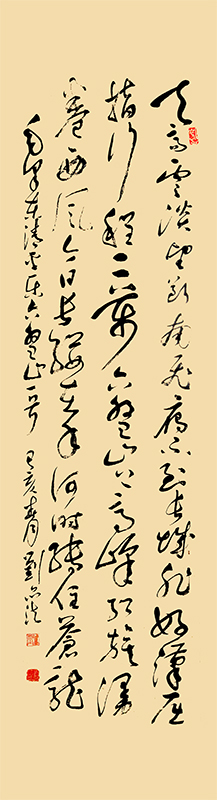 天高雲淡望斷南飛雁不到長城非好漢屈
指行程二萬六盤山上高峰紅旗漫
卷西風今日長纓在手何時縛住蒼龍
毛澤東清平樂六盤山一首 己亥春月 劉